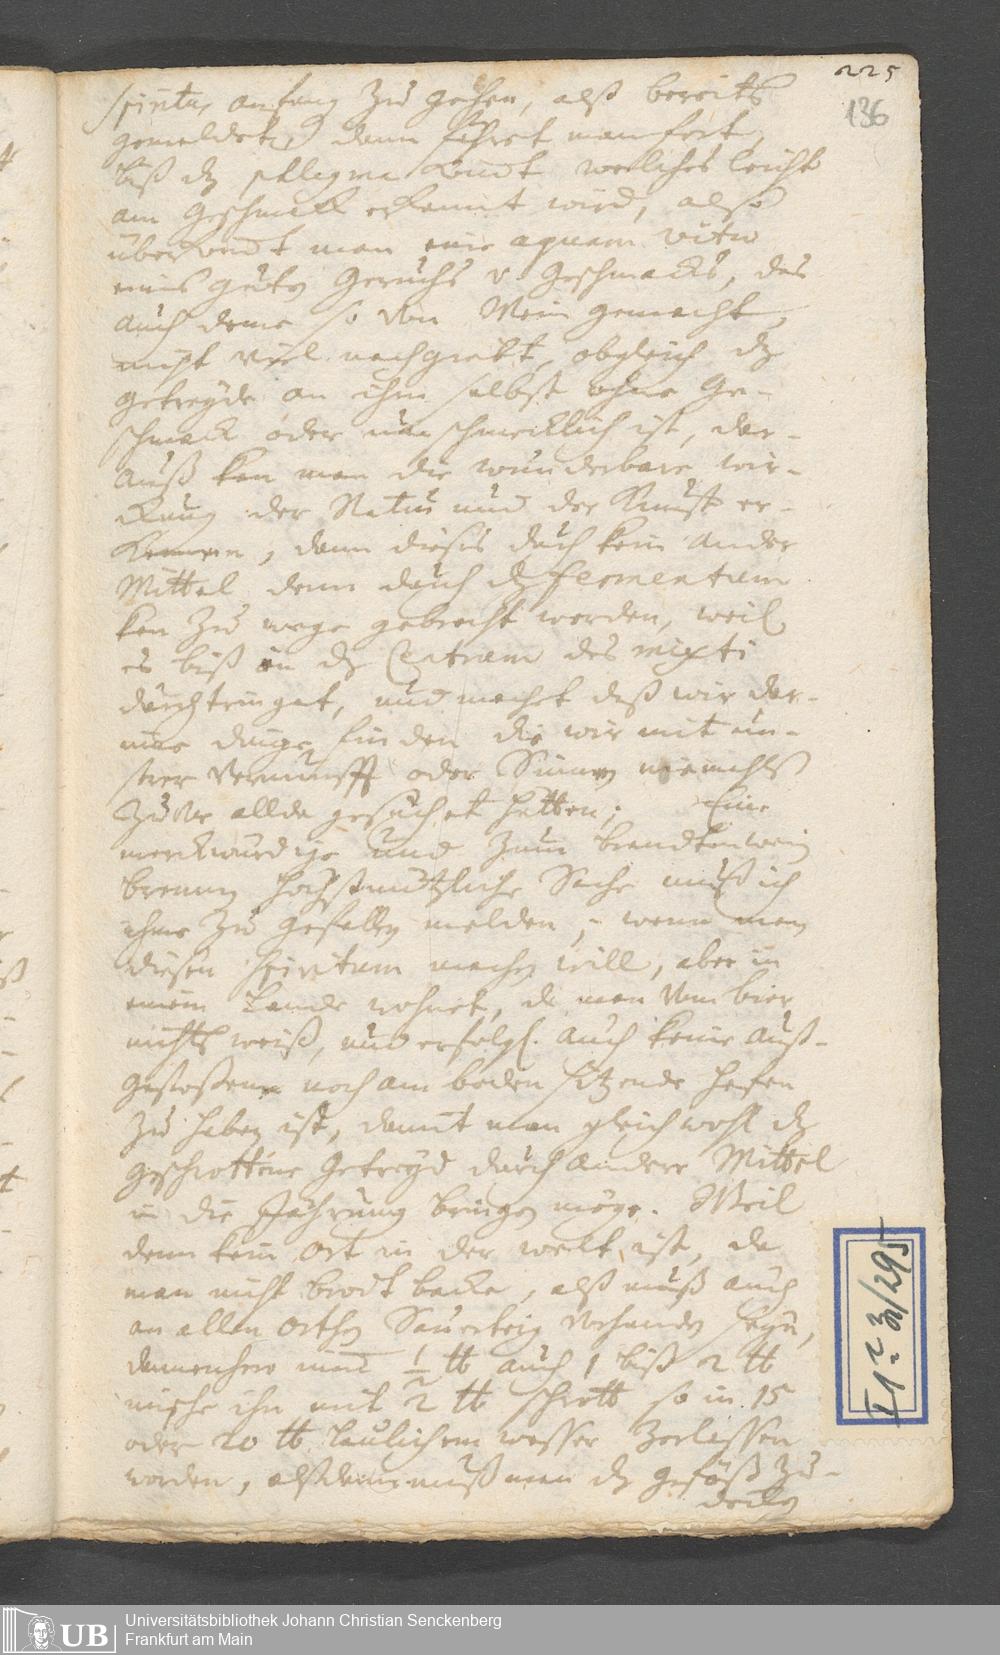 225
136
spiritus anfang zu gehen, alß bereits
gemeldet) dann fehret man fort,
biß dz phlegma komt welches leicht
am Geschmack erkennt wird, also
überkomt man eine aquam vitae
eines guten Geruchs v. Geschmacks, das
auch deme so von Wein gemacht,
nicht viel nachgiebt, obgleich dz
getreyde an ihm selbst ohne Ge-
schmack oder unschmecklich ist, dar-
auß kan man die wunderbare wir-
ckung der Natur und der Kunst er-
kennen, dann dieses durch kein ander
Mittel denn durch dz fermentum
kan zu wege gebracht werden, weil
es biß in dz Centrum des mixti
durchtringet, und machet daß wir dar-
inne dinge finden die wir mit un-
srer Vernunfft oder Sinnen niemahls
zuvor allda gesuchet hätten; Eine
merckwürdige und zum brandtenwein
brennen höchstnützliche Sache muß ich
ihme zu gefallen melden, wenn man
diesen Spiritum machen will, aber in
einem Lande wohnet, da man vom bier
nichts weiß, und erfolgl. auch keine auß-
gestoßene noch am boden sitzende hefen
zu haben ist, damit man gleichwohl dz
geschrottene Getreyd durch andere Mittel
in die Jährung bringen möge. Weil
denn kein ort in der welt ist, da
man nicht brodt backe, alß muß auch
an allen orthen Sauerteig vorhanden seyn,
dannenhero nim ½ ℔ auch 1 biß 2 ℔
mische ihn mit 2 ℔ schrott so in 15
oder 20 ℔ laulichem wasser zerlassen
worden, alßdann muß man dz gefäß zu-
decken
Universitätsbibliothek Johann Christian Senckenberg
Frankfurt am Main
UB